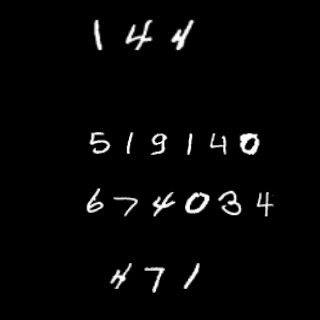 144
519140
674034
471